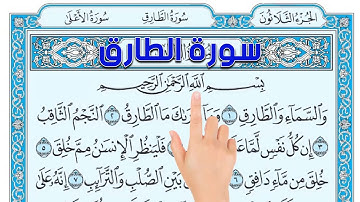 الجزء الثلاثون سورة الطارق سورة الأعلى
سورة الطارق
بِسْمِ اللَّهِ الرَّحْمَٰنِ الرَّحِيمِ
وَالسَّمَاءِ وَالطَّارِقِ ١ مَا الطَّارِقُ ٢ النَّجْمُ الثَّاقِبُ
٣ إِن كُلُّ نَفْسٍ لَّمَّا فَلْيَنظُرِ الْإِنسَانُ مِمَّ خُلِقَ ٥
خُلِقَ مِن مَّاءٍ دَافِقٍ بَيْنِ الصُّلْبِ وَالتَّرَائِبِ ٧ إِنَّهُ عَلَىٰ